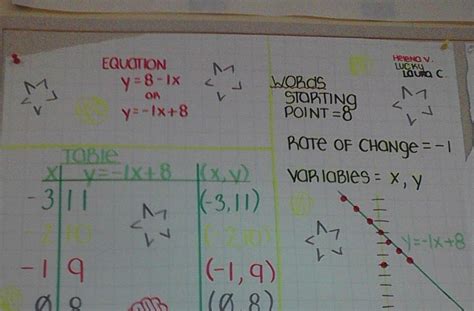 EQUATION
y=8-1x
OR
y=-1x+8
WORDS
STARTING
POINT=8
RATE OF CHANGE=-1
VARIABLES= x, y
Helena V.
LUCKY
Laura C.
TABLE
x y=-1x+8 (x, y)
-3 11 (-3,11)
-2 10 (-2,10)
-1 9 (-1, 9)
0 8 (0,8)
y=-1x+8